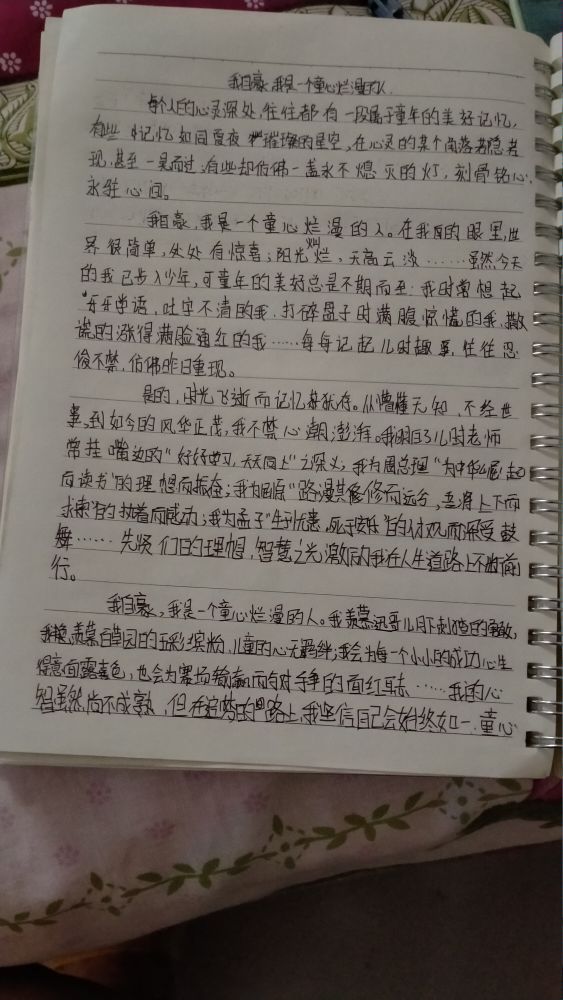 我自豪,我是一个童心烂漫的人
每个人的心灵深处,往往都有一段属于童年的美好记忆,
有些记忆如同夏夜璀璨的星空,在心灵的某个角落若隐若
现,甚至一晃而过;有些却仿佛一盏永不熄灭的灯,刻骨铭心,
永驻心间。
我自豪,我是一个童心烂漫的人。在我的眼里,世
界很简单,处处有惊喜;阳光灿烂,天高云淡……虽然今天
的我已步入少年,可童年的美好总是不期而至:我时常想起
牙牙学语,吐字不清的我,打碎盘子时满腹惊慌的我,撒
谎的涨得满脸通红的我……每每记起儿时趣事,往往忍
俊不禁,仿佛昨日重现。
是的,时光飞逝而记忆犹存。从懵懂无知,不经世
事,到如今的风华正茂,我不禁心潮澎湃。我明白了儿时老师
常挂嘴边的"好好学习,天天向上"之深义;我为周总理"为中华崛起
而读书"的理想而振奋;我为屈原"路漫其修修而远兮,吾将上下而
求索"的执着而感动;我为孟子"生于忧患,死于安乐"的观而深受鼓
舞……先贤们的理想,智慧之光激励我在人生道路上不断前
行。
我自豪,我是一个童心烂漫的人。我羡慕迅哥儿月下刺猹的勇敢,
我羡慕百草园的五彩缤纷,儿童的心无羁绊;我会为每一个小小的成功心生
得意而露喜色,也会为累场输赢而与对手争的面红耳赤……我的心
智虽然尚不成熟,但在追梦的路上,我坚信自己会始终如一,童心